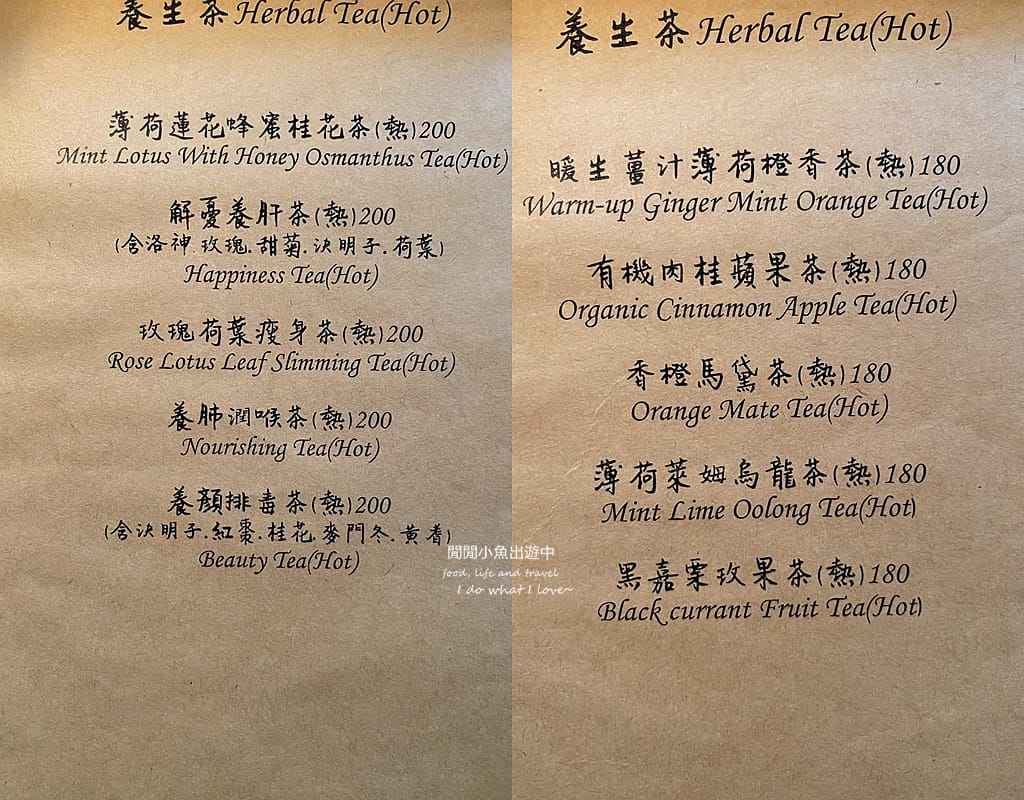 養生茶Herbal Tea(Hot)
薄荷蓮花蜂蜜桂花茶(熱)200
Mint Lotus With Honey Osmanthus Tea(Hot)
解憂養肝茶(熱)200
(含洛神.玫瑰.甜菊.決明子.荷葉)
Happiness Tea(Hot)
玫瑰荷葉瘦身茶(熱)200
Rose Lotus Leaf Slimming Tea(Hot)
養肺潤喉茶(熱)200
Nourishing Tea(Hot)
養顏排毒茶(熱)200
(含決明子.紅棗.桂花.麥門冬.黃耆)
Beauty Tea(Hot)
閒閒小魚出遊中
food, life and travel
I do what I love~
養生茶Herbal Tea(Hot)
暖生薑汁薄荷橙香茶(熱)180
Warm-up Ginger Mint Orange Tea(Hot)
有機肉桂蘋果茶(熱)180
Organic Cinnamon Apple Tea(Hot)
香橙馬黛茶(熱)180
Orange Mate Tea(Hot)
薄荷萊姆烏龍茶(熱)180
Mint Lime Oolong Tea(Hot)
黑嘉栗玫果茶(熱)180
Black currant Fruit Tea(Hot)